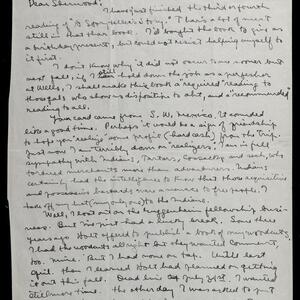 Dear Sherwood;
I have just finished the third or fourth
reading of "A Story Teller's Story." There's a lot of meat
still in that book. I'd bought the book to give as
a birthday present, but could not resist helping myself to
it first.
I don't know why it did not occur to me sooner but
next fall, if I still hold down the job as a perfesser
at Wells, I shall make this book a required reading to
those gals who show no disposition to it, and a "recommended"
reading to all.
Your card came from S. W., Mexico. It sounded
like a good time. Perhaps it would be a fair friendship
to hope you reap some profit (hard cash) from the trip.
Just now I am terribly down on "realizers." I am in full
sympathy with Indians, Tartars, Cossacks and such, who
tortured merchants more than adventurers. Indians
certainly had the intelligence to know that those acquisitive
and possessive bastards were a menace to free people. I
take off my hat (my only one) to the Indians.
Well, I lost out on the Guggenheim fellowship busi-
ness. But I've just had a minor break. Some three
years ago Holt offered to publish a book of my woodcuts,
had the woodcuts all right but they wanted comment,
too, mine. But I had none on tap. Until last
April. Then I learned Holt had planned on getting
it out this fall. Dead line July 31st. I wanted
still more time. The other day I was asked to put